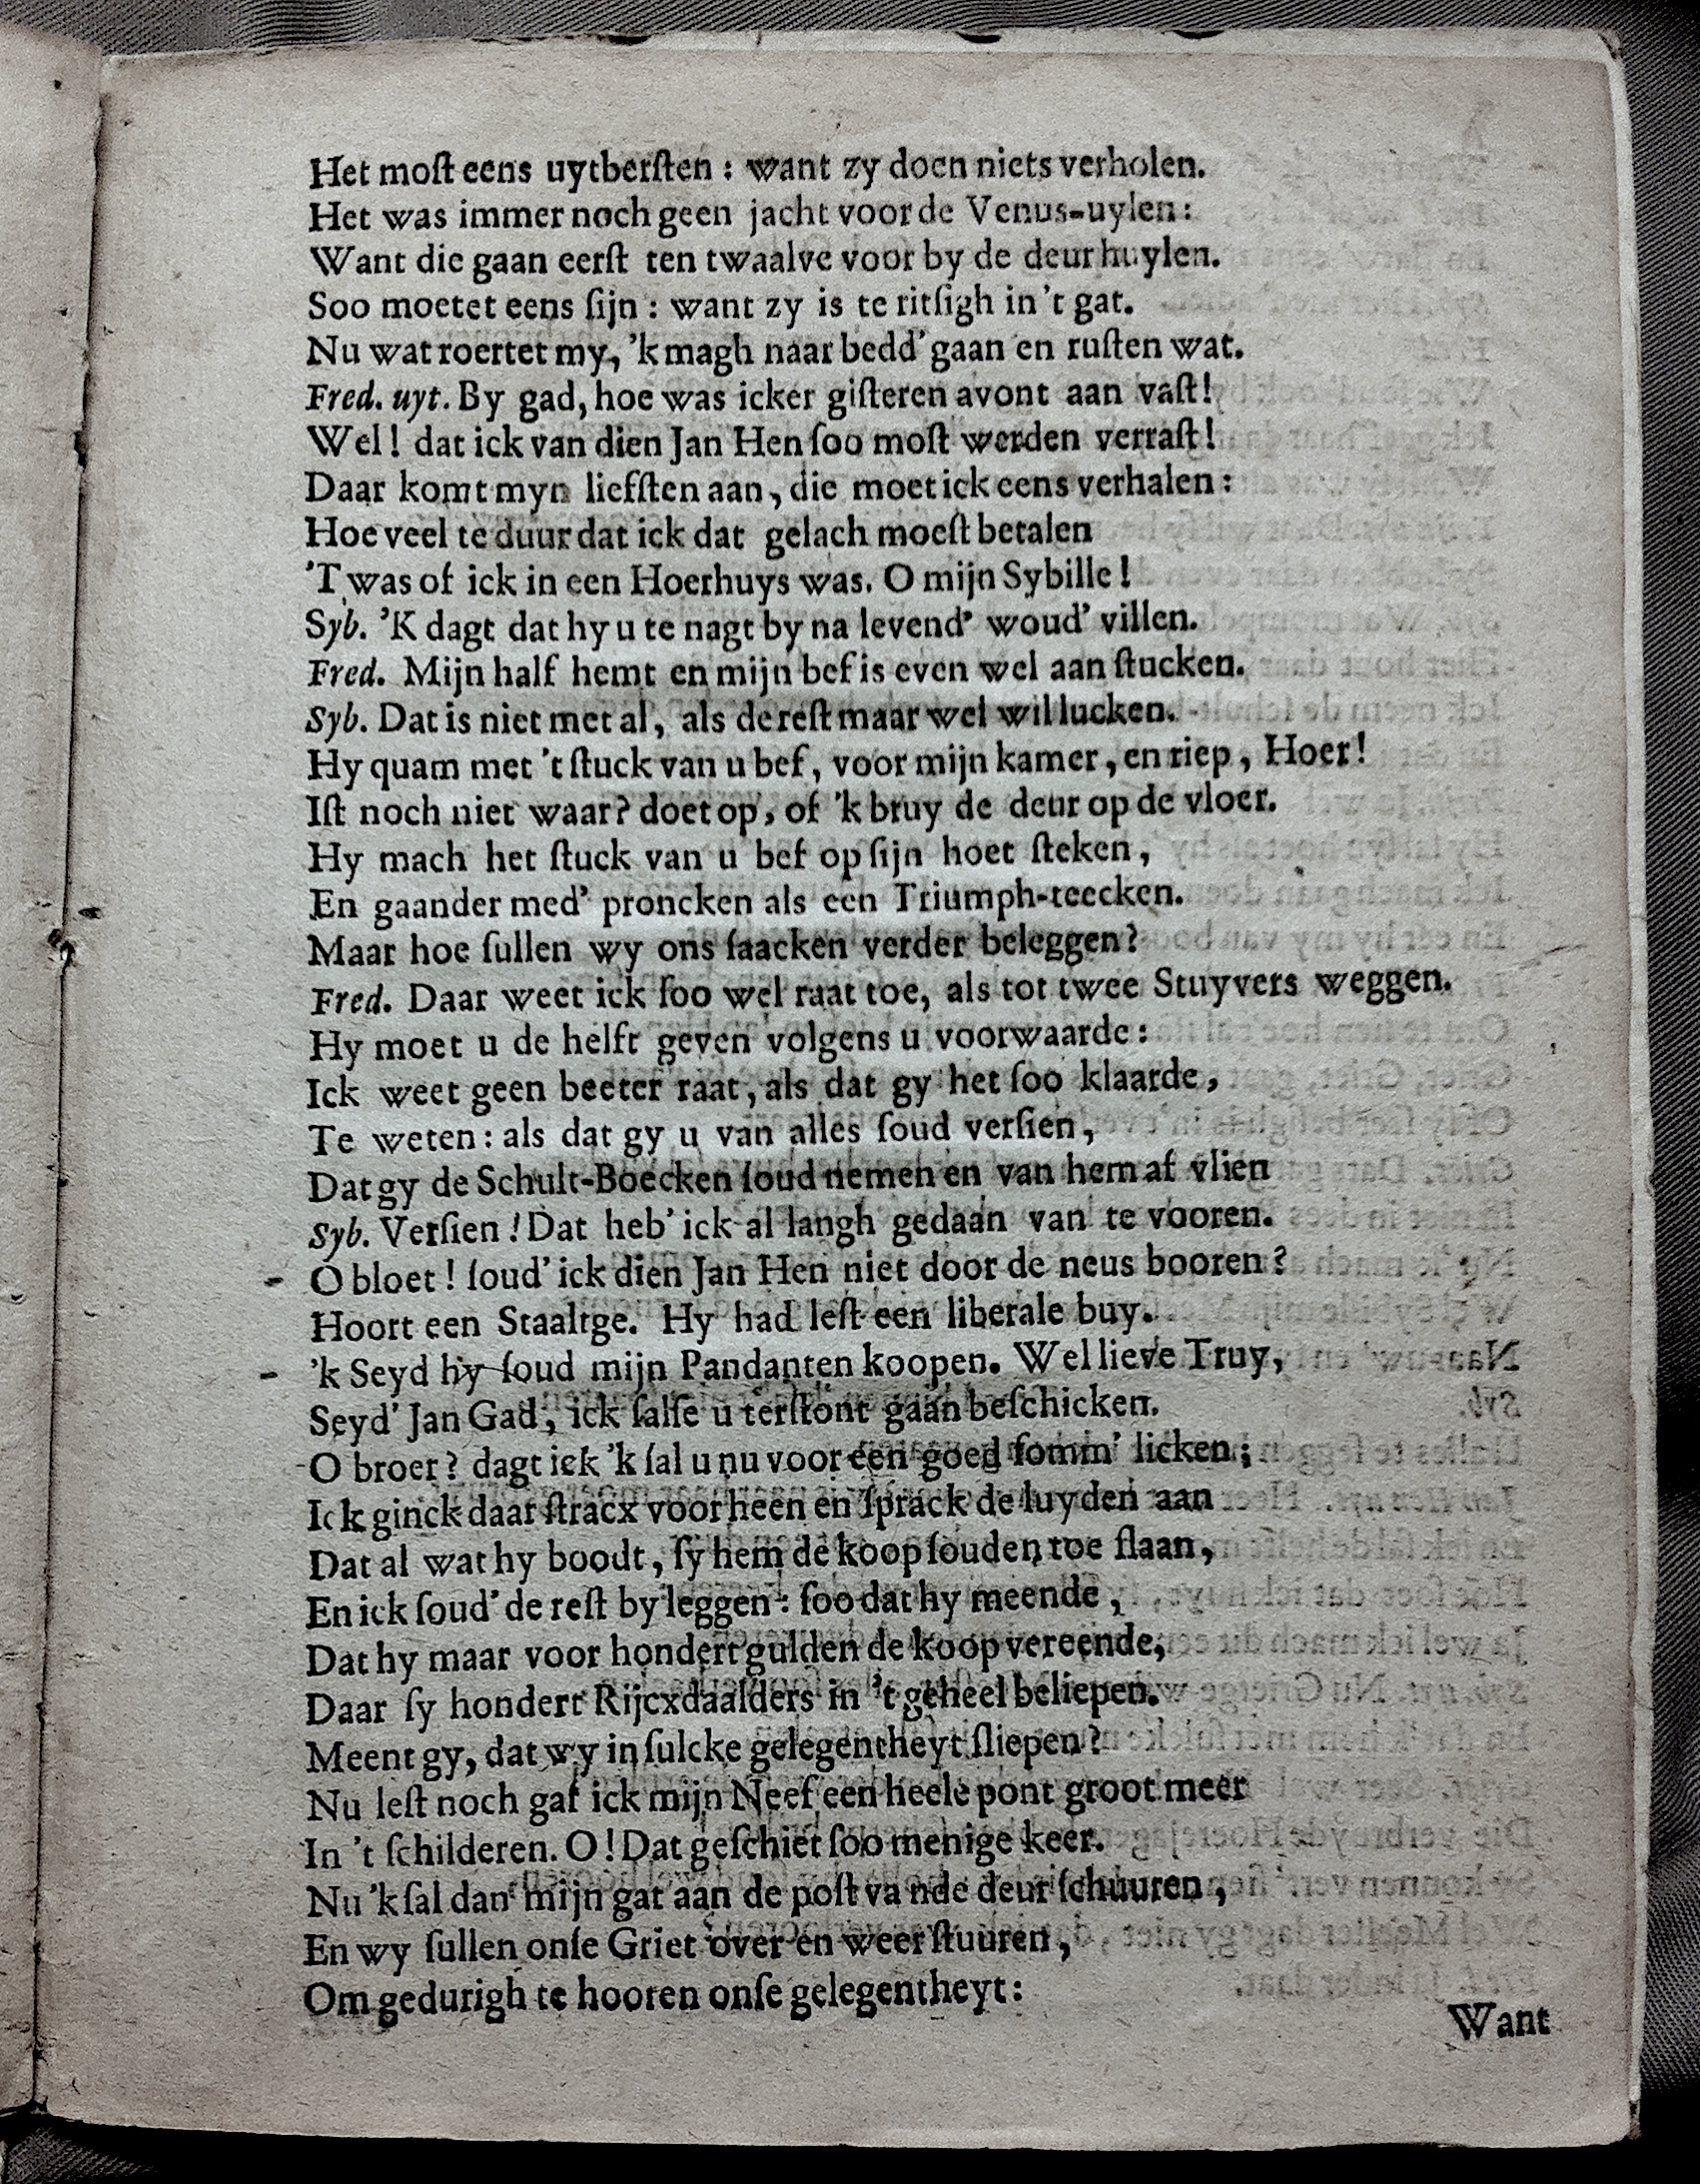 Het moſt eens uytberſten : want zy doen niets verholen.
Het was immer noch geen jacht voor de Venus-uylen :
Want die gaan eerſt ten twaalve voor by de deur huylen.
Soo moetet eens ſijn : want zy is te ritſigh in 't gat.
Nu wat roertet my, 'k magh naar bedd' gaan en ruſten wat.
Fred. uyt. By gad, hoe was icker giſteren avont aan vaſt!
Wel! dat ick van dien Jan Hen ſoo moſt werden verraſt!
Daar komt myn liefſten aan, die moet ick eens verhalen :
Hoe veel te duur dat ick dat gelach moeſt betalen
'T was of ick in een Hoerhuys was. O mijn Sybille!
Syb. 'K dagt dat hy u te nagt by na levend' woud' villen.
Fred. Mijn half hemt en mijn bef is even wel aan ſtucken.
Syb. Dat is niet met al, als de reſt maar wel wil lucken.
Hy quam met 't ſtuck van u bef, voor mijn kamer, en riep, Hoer!
Iſt noch niet waar? doet op, of 'k bruy de deur op de vloer.
Hy mach het ſtuck van u bef op ſijn hoet ſteken,
En gaander med' proncken als een Triumph-teecken.
Maar hoe ſullen wy ons ſaacken verder beleggen?
Fred. Daar weet ick ſoo wel raat toe, als tot twee Stuyvers weggen.
Hy moet u de helft geven volgens u voorwaarde :
Ick weet geen beeter raat, als dat gy het ſoo klaarde,
Te weten : als dat gy u van alles ſoud verſien,
Dat gy de Schult-Boecken ſoud nemen en van hem af vlien
Syb. Verſien! Dat heb' ick al langh gedaan van te vooren.
O bloet! ſoud' ick dien Jan Hen niet door de neus booren?
Hoort een Staaltge. Hy had leſt een liberale buy.
'k Seyd hy ſoud mijn Pandanten koopen. Wel lieve Truy,
Seyd' Jan Gad, ick ſalſe u terſtont gaan beſchicken.
O broer? dagt iek 'k ſal u nu voor een goed ſomm' licken;
Ick ginck daar ſtracx voor heen en ſprack de luyden aan
Dat al wat hy boodt, ſy hem de koop ſouden toe ſlaan,
En ick ſoud' de reſt by leggen : ſoo dat hy meende,
Dat hy maar voor hondert gulden de koop vereende,
Daar ſy hondert Rijcxdaalders in 't geheel beliepen.
Meent gy, dat wy in ſulcke gelegentheyt ſliepen?
Nu leſt noch gaf ick mijn Neef een heele pont groot meer
In 't ſchilderen. O! Dat geſchiet ſoo menige keer.
Nu 'k ſal dan mijn gat aan de poſt va nde deur ſchuuren,
En wy ſullen onſe Griet over en weer ſtuuren,
Om gedurigh te hooren onſe gelegentheyt :
Want